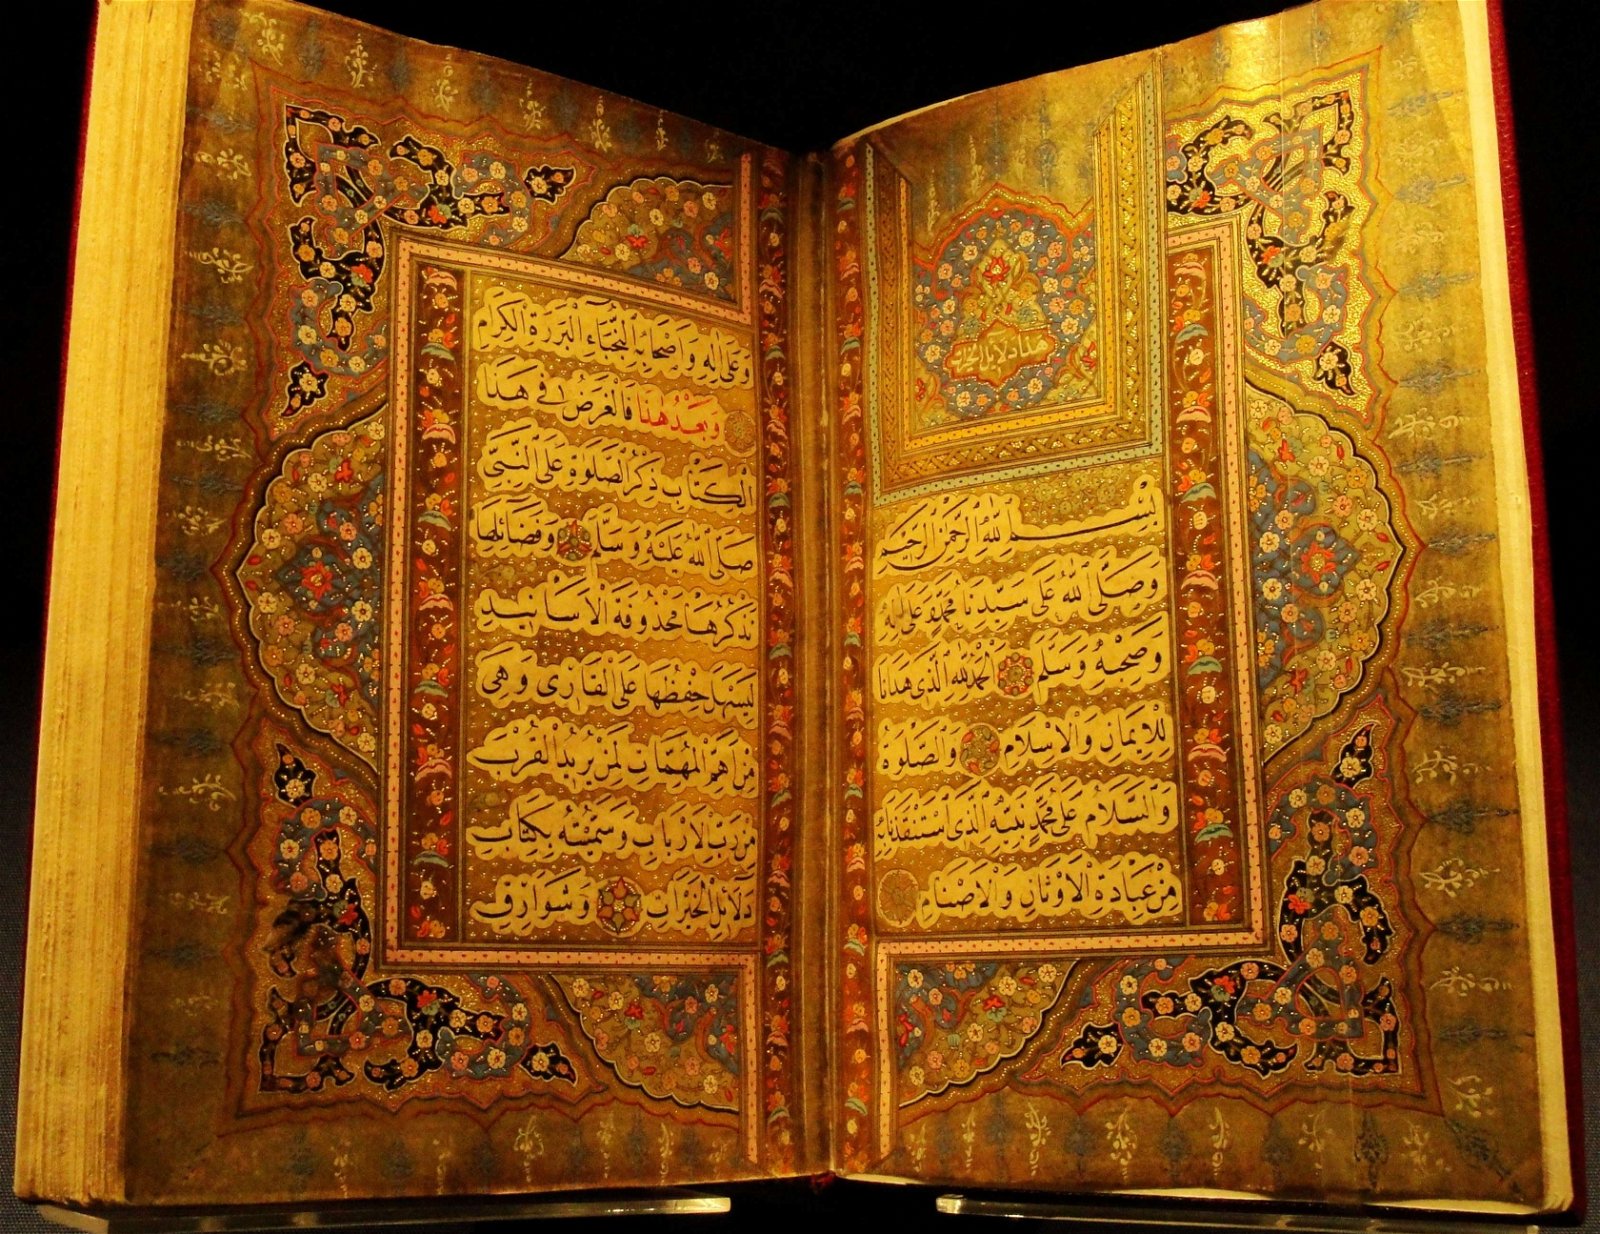 هذا دلائل الخيرات
بِسْمِ اللهِ الرَّحْمٰنِ الرَّحِيمِ
وَصَلَّى اللهُ عَلَى سَيِّدِنَا مُحَمَّدٍ وَعَلَى اٰلِهِ
وَصَحْبِهِ وَسَلَّمَ اَلْحَمْدُ لِلّٰهِ الَّذِى هَدَانَا
لِلْاِيمَانِ وَالْاِسْلَامِ وَالصَّلٰوةُ
وَالسَّلَامُ عَلَى مُحَمَّدٍ نَبِيِّهِ الَّذِى اسْتَنْقَذَنَا بِهِ
مِنْ عِبَادَةِ الْاَوْثَانِ وَالْاَصْنَامِ
وَعَلَى اٰلِهِ وَاَصْحَابِهِ النُّجَبَاءِ الْبَرَرَةِ الْكِرَامِ
وَبَعْدُ هٰذَا فَالْغَرَضُ فِى هٰذَا
الْكِتَابِ ذِكْرُ الصَّلٰوةِ عَلَى النَّبِيِّ
صَلَّى اللهُ عَلَيْهِ وَسَلَّمَ وَفَضَائِلِهَا
نَذْكُرُهَا مَحْذُوفَةَ الْاَسَانِيدِ
لِيَسْهُلَ حِفْظُهَا عَلَى الْقَارِى وَهِىَ
مِنْ اَهَمِّ الْمُهِمَّاتِ لِمَنْ يُرِيدُ الْقُرْبَ
مِنْ رَبِّ الْاَرْبَابِ وَسَمَّيْتُهُ بِكِتَابِ
دَلَائِلِ الْخَيْرَاتِ وَشَوَارِقِ